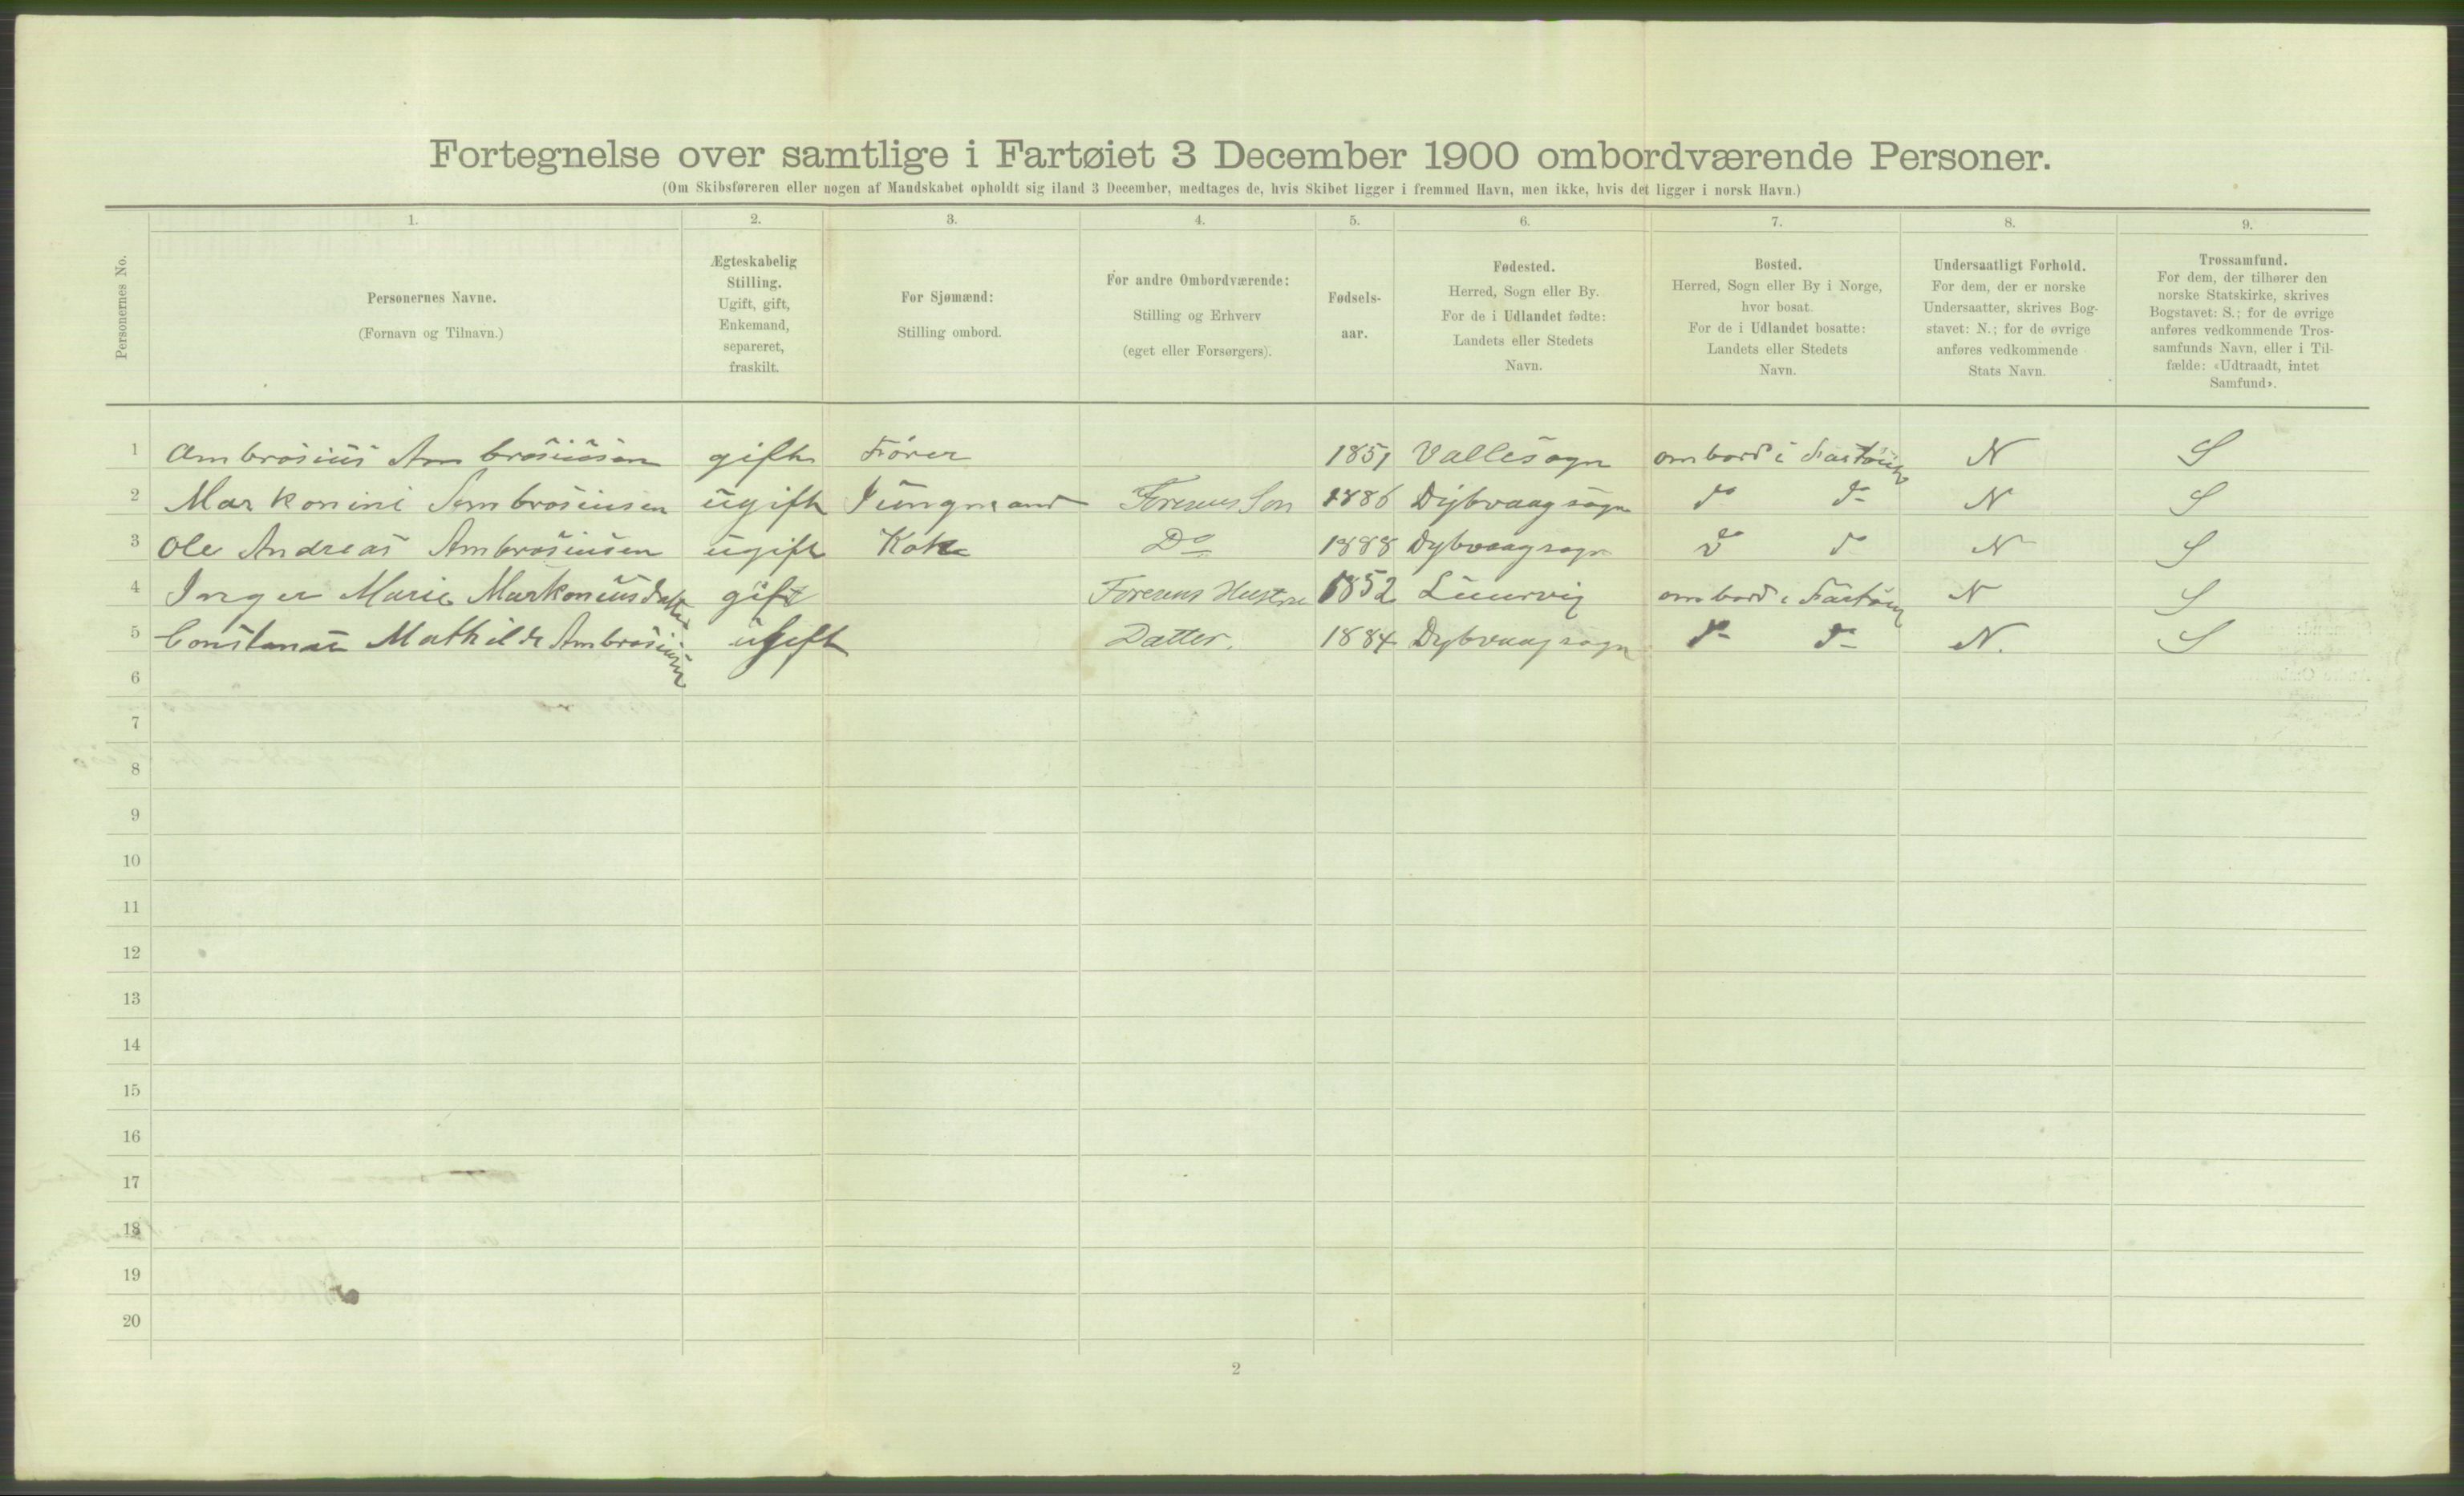 Fortegnelse over samtlige i Fartøiet 3 December 1900 ombordværende Personer.
(Om Skibsføreren eller nogen af Mandskabet opholdt sig iland 3 December, medtages de, hvis Skibet ligger i fremmed Havn, men ikke, hvis det ligger i norsk Havn.)
Personernes No.
1.
Personernes Navne.
(Fornavn og Tilnavn.)
2.
Ægteskabelig
Stilling.
Ugift, gift,
Enkemand,
separeret,
fraskilt.
3.
For Sjømænd:
Stilling ombord.
4.
For andre Ombordværende:
Stilling og Erhverv
(eget eller Forsørgers).
5.
Fødsels-
aar.
6.
Fødested.
Herred, Sogn eller By.
For de i Udlandet fødte:
Landets eller Stedets
Navn.
7.
Bosted.
Herred, Sogn eller By i Norge,
hvor bosat.
For de i Udlandet bosatte:
Landets eller Stedets
Navn.
8.
Undersaatligt Forhold.
For dem, der er norske
Undersaatter, skrives Bog-
stavet: N.; for de øvrige
anføres vedkommende
Stats Navn.
9.
Trossamfund.
For dem, der tilhører den
norske Statskirke, skrives
Bogstavet: S.; for de øvrige
anføres vedkommende Tros-
samfunds Navn, eller i Til-
fælde: «Udtraadt, intet
Samfund».
1 Ambrosius Ambrosiusen gift Fører 1851 Vallesogn ombord i Fartøiet N S
2 Markonini Ambrosiusen ugift Jungmand Førerens Søn 1886 Dybvaag sogn do do N S
3 Ole Andreas Ambrosiusen ugift Kok Do 1888 Dybvaag sogn do do N S
4 Inger Marie Markoniusdatter gift Førerens Hustru 1852 ombord i Fartøiet N S
5 Constance Mathilde Ambrosiusen ugift Datter. 1884 Dybvaag sogn do do N. S
6
7
8
9
10
11
12
13
14
15
16
17
18
19
20
2